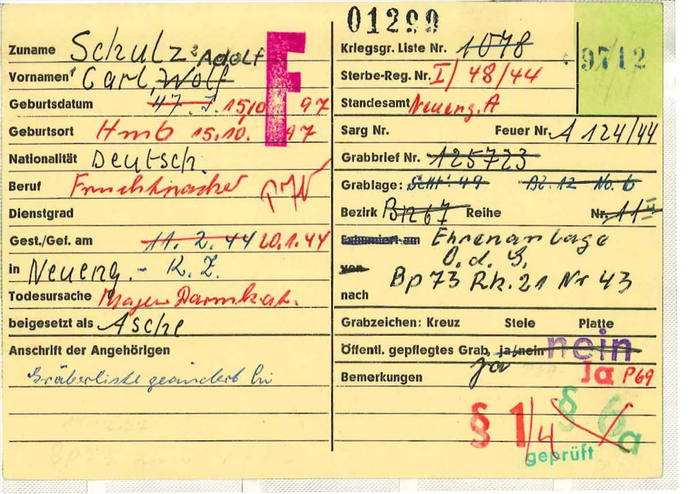 01299
Zuname Schulz
Vornamen Carl, Wolf Adolf
Geburtsdatum 15.10 97
Geburtsort Hmb 15.10. 97
Nationalität Deutsch.
Beruf
Dienstgrad
Gest./Gef. am 11. 2. 44 20.1.44
in Neueng. - K. Z.
Todesursache Magen Darmkat.
beigesetzt als Asche
Anschrift der Angehörigen
Gräberliste gesondert
F
Kriegsgr. Liste Nr. 1078
9712
Sterbe-Reg. Nr. I/48/44
Standesamt Neueng. A
Sarg Nr. Feuer Nr. A 124/44
Grabbrief Nr. 125723
Grablage: Bl. 12 No. 6
Bezirk Bn 67 Reihe Nr. 11
Exhumiert am Ehrenanlage
von O. d. G,
nach Bp 73 Rh. 21 Nr 43
Grabzeichen: Kreuz Stele Platte
Öffentl. gepflegtes Grab, ja/nein nein
ja
Bemerkungen Ja P69
§ 1/4 § 6a
geprüft